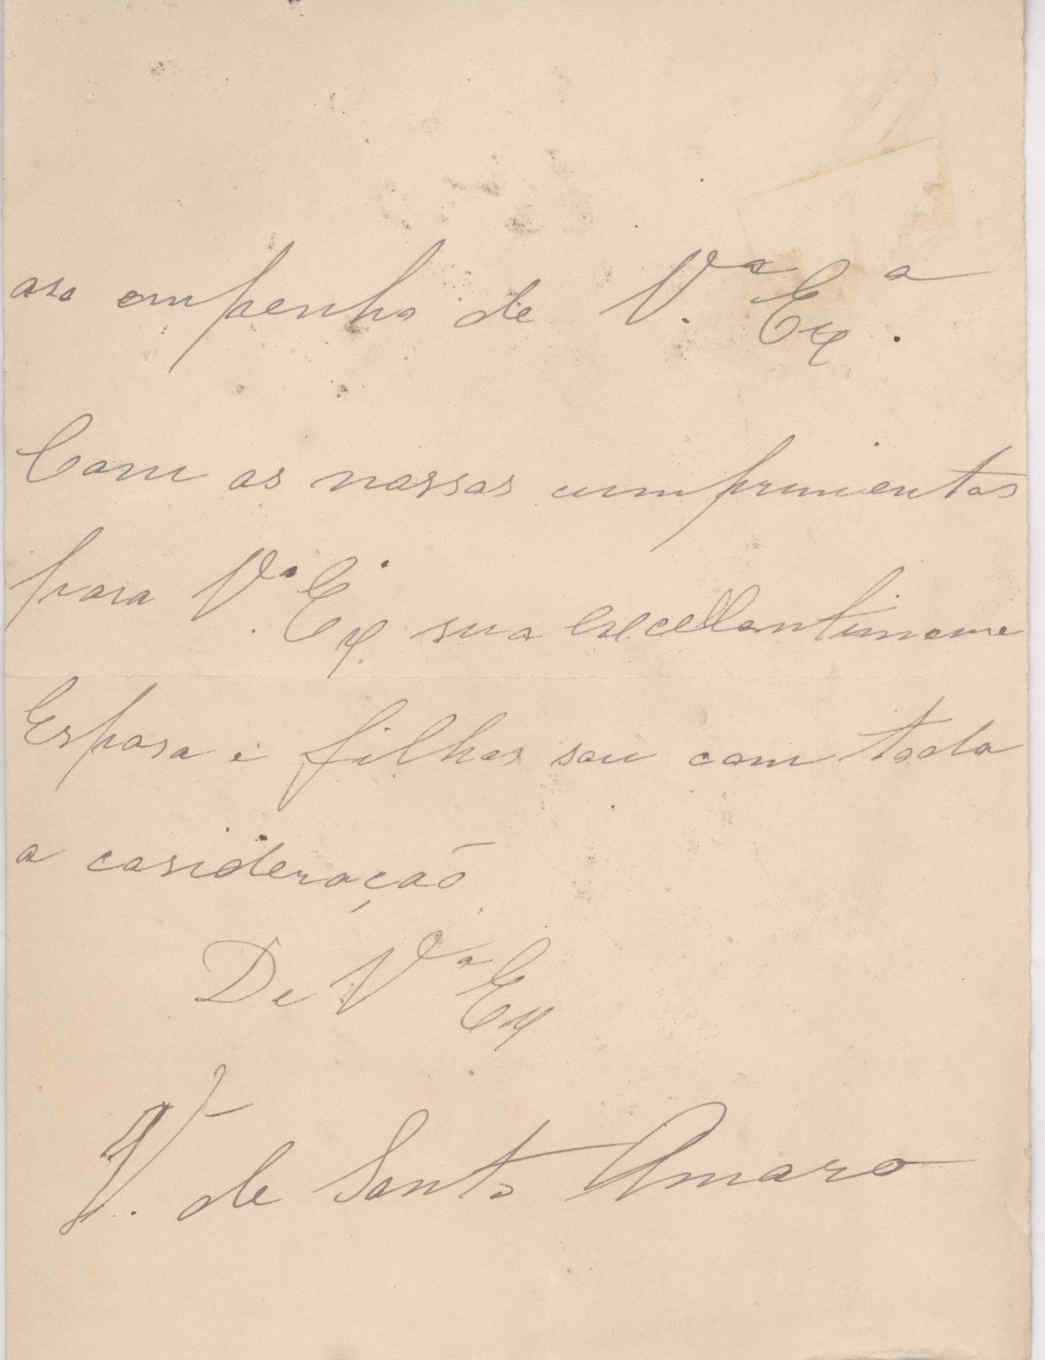 aso empenho de V.ª Ex.ª
Com os nossos cumprimentos
para V.ª Ex.ª sua excellentissima
Esposa e filhos sou com toda
a cosideração
De Vª Ex
V. de Santo Amaro